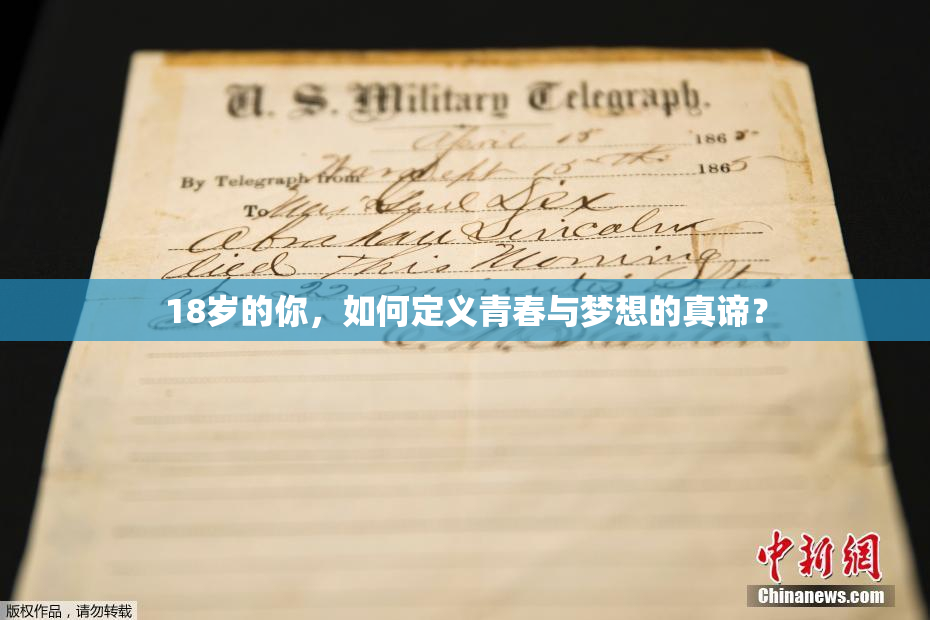 U. S. Military Telegraph.
April 15 1865
By Telegraph from War Dept 15th 1865
To Maj Genl Dix
Abraham Lincoln
died This Morning
22 minutes after
18岁的你，如何定义青春与梦想的真谛？
E. M. Stanton
中新网
Chinanews.com
版权作品，请勿转载